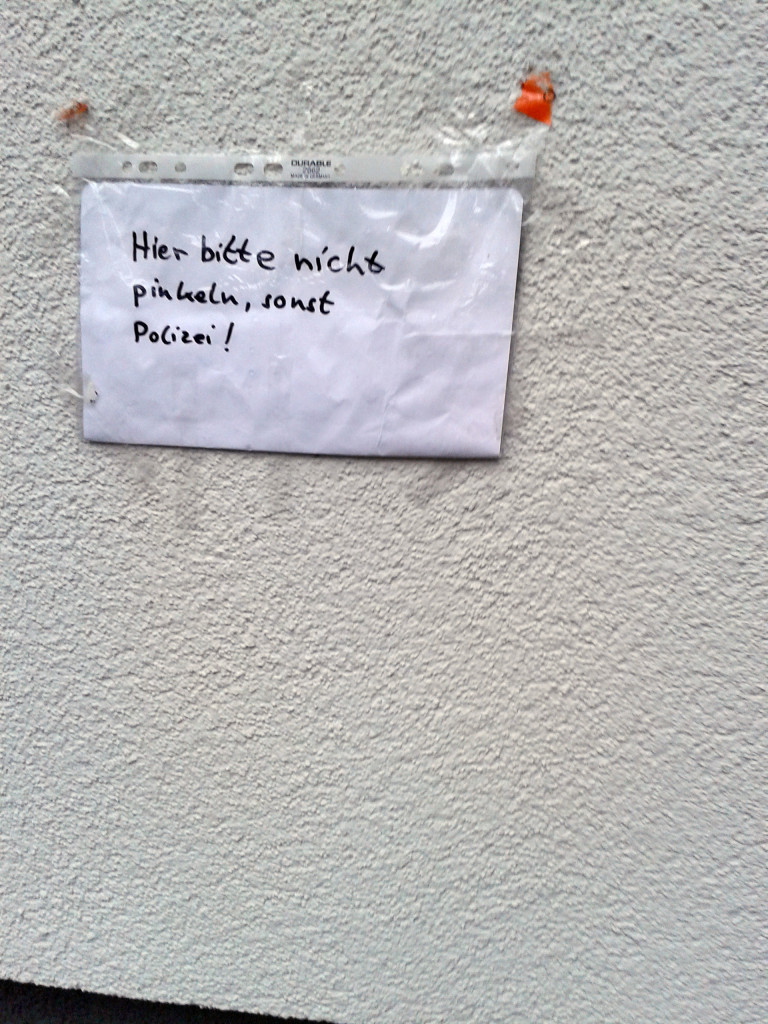 DURABLE
2662
MADE IN GERMANY
Hier bitte nicht
pinkeln, sonst
Polizei!